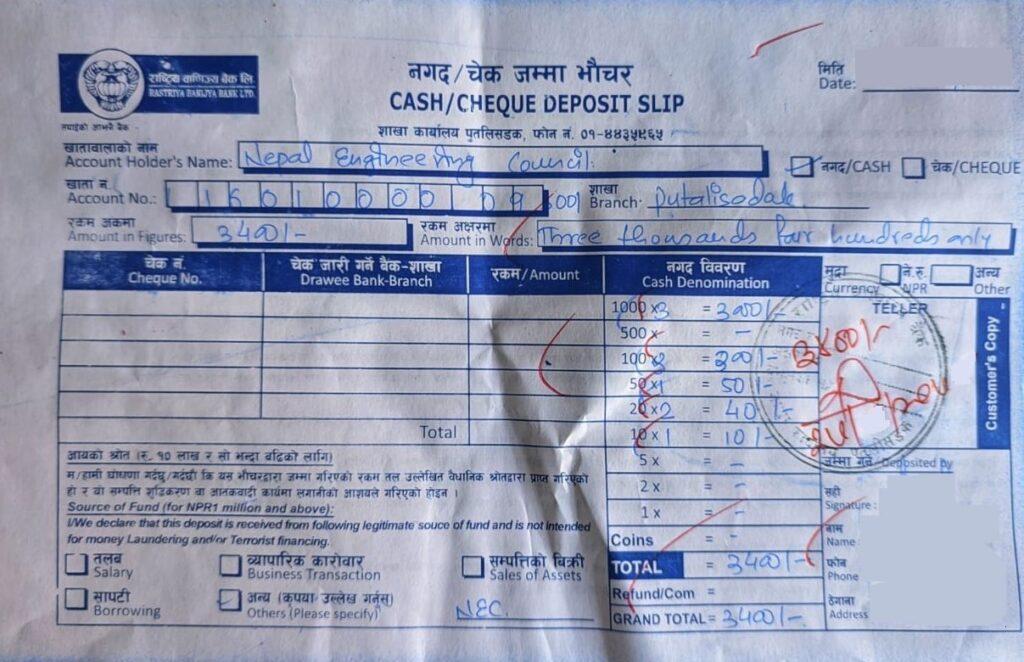 राष्ट्रिय वाणिज्य बैंक लि.
RASTRIYA BANIJYA BANK LTD.
तपाईको आफ्नै बैंक
नगद/चेक जम्मा भौचर
CASH/CHEQUE DEPOSIT SLIP
मिति
Date:
शाखा कार्यालय पुतलिसडक, फोन नं. ०१-४४३५९६५
खातावालाको नाम
Account Holder's Name: Nepal Engineering Council.
नगद/CASH चेक/CHEQUE
खाता नं.
Account No.: 1 1601 0000 09 001
शाखा
Branch: Putalisadak
रकम अंकमा
Amount in Figures: 3400/-
रकम अक्षरमा
Amount in Words: Three thousands four hundreds only
चेक नं.
Cheque No.
चेक जारी गर्ने बैंक-शाखा
Drawee Bank-Branch
रकम/Amount
नगद विवरण
Cash Denomination
मुद्रा
Currency
ने.रु.
NPR
अन्य
Other
1000 x 3 = 3000/-
500 x = -
100 x 3 = 300/-
50 x 1 = 50/-
20 x 2 = 40/-
10 x 1 = 10/-
5 x = -
2 x = -
1 x = -
Coins = -
TOTAL = 3400/-
Refund/Com =
GRAND TOTAL = 3400/-
Total
TELLER
३४००/-
Customer's Copy
आयको श्रोत (रु. १० लाख र सो भन्दा बढिको लागि)
म/हामी घोषणा गर्दछु/गर्दछौं कि यस भौचरद्वारा जम्मा गरिएको रकम तल उल्लेखित वैधानिक श्रोतद्वारा प्राप्त गरिएको
हो र यो सम्पत्ति शुद्धिकरण वा आतंकवादी कार्यमा लगानीको आशयले गरिएको होइन ।
Source of Fund (for NPR1 million and above):
I/We declare that this deposit is received from following legitimate souce of fund and is not Intended
for money Laundering and/or Terrorist financing.
तलब
Salary
व्यापारिक कारोवार
Business Transaction
सम्पत्तिको बिक्री
Sales of Assets
सापटी
Borrowing
अन्य (कृपया उल्लेख गर्नुस)
Others (Please specify) NEC.
जम्मा गर्ने Deposited By
सही
Signature :
नाम
Name :
फोन
Phone
ठेगाना
Address